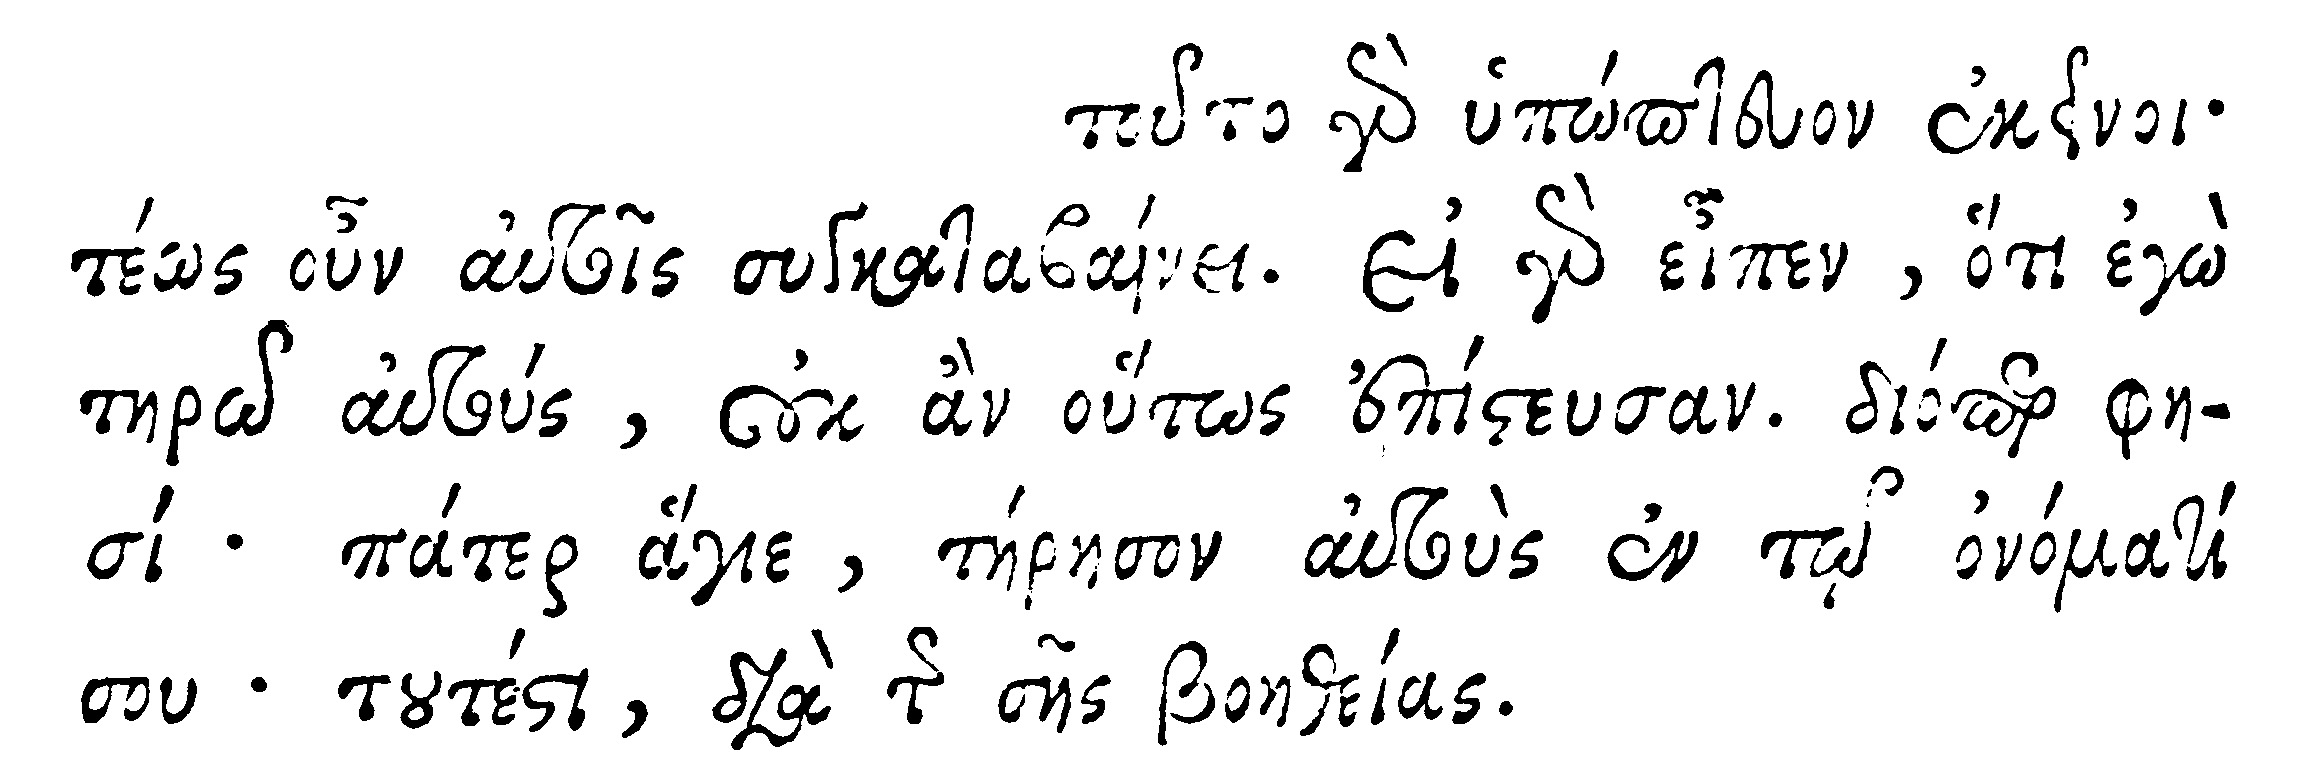 τοῦτο γὰρ ὑπώπτευον ἐκεῖνοι·
τέως οὖν αὐτοῖς συγκαταβαίνει. Εἰ γὰρ εἶπεν, ὅτι ἐγὼ
τηρῶ αὐτούς, οὐκ ἂν οὕτως ἐπίστευσαν. διόπερ φη-
σί· πάτερ ἅγιε, τήρησον αὐτοὺς ἐν τῷ ὀνόματί
σου· τουτέστι, διὰ τῆς σῆς βοηθείας.